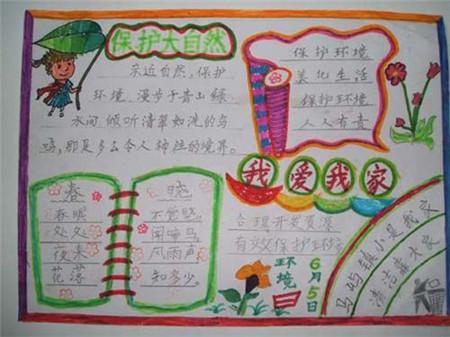 保护大自然
亲近自然,保护
环境,漫步于青山绿
水间,倾听清翠如洗的鸟
鸣,那是多么令人神往的境界。
保护环境
美化生活
保护环境
人人有责
我爱我家
春 晓
春眠 不觉晓
处处 闻啼鸟
夜来 风雨声
花落 知多少。
合理开发资源
有效保护
环境日
6月5日
镇小是我家
清洁靠大家